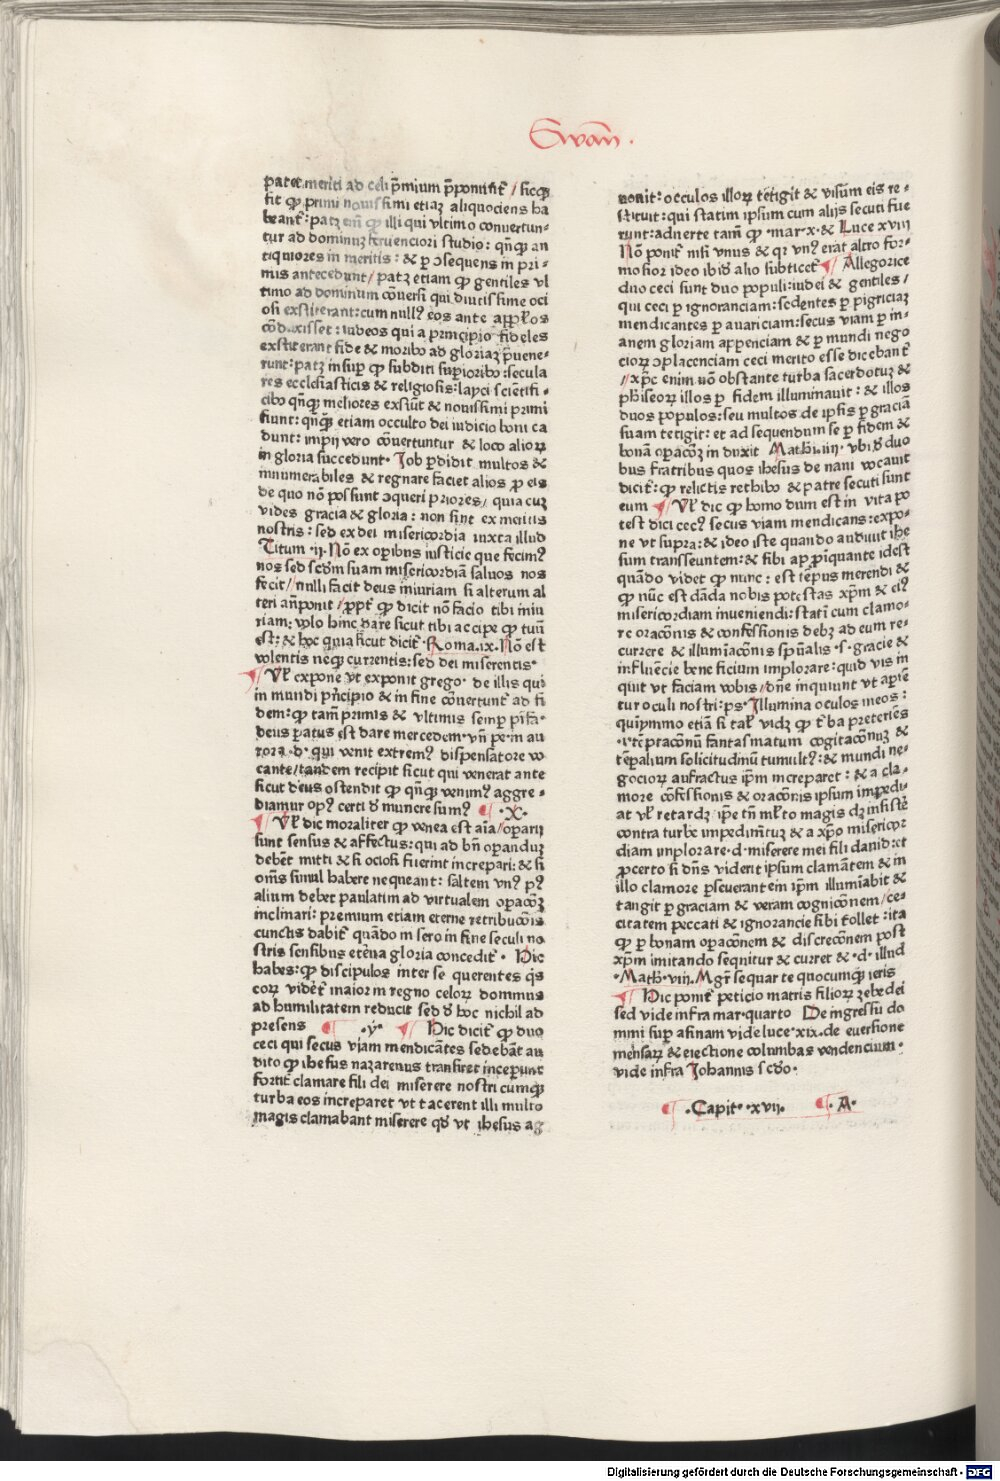 Ewan̄ .
patet meriti ad celi p̄mium p̄ponit᷑ / sicqꝫ
fit ꝙ primi nouissimi etiaꝫ aliquociens ha
beant᷑: patꝫ em̄ ꝙ illi qui vltimo conuertun-
tur ad dominuꝫ feruenciori studio: qn̄qꝫ an
tiquiores in meritis: & ꝑ ɔsequens in pri-
mis antecedunt / patꝫ etiam ꝙ gentiles vl
timo ad dominum cōuersi qui diutissime oci
osi exstiterant: cum nullꝰ eos ante app̄los
exstiterant fide & moribꝰ ad gloriaꝫ ꝑuene-
runt: patꝫ insuꝑ ꝙ subditi suꝑioribꝰ: secula
res ecclesiasticis & religiosis: layci scientifi-
cibꝰ qn̄qꝫ meliores exstūt & nouissimi primi
fiunt: qn̄qꝫ etiam occulto dei iudicio boni ca
dunt: impij vero cōuertuntur & loco alioꝝ
in gloria succedunt · Job ꝑdidit multos &
innumerabiles & regnare faciet alios ꝓ eis
de quo nō possunt ɔqueri priores / quia cuꝫ
vides gracia & gloria: non sint ex meritis
nostris: sed ex dei misericordia iuxta illud
Titum ·ij· Nō ex oꝑibus iusticie que fecimꝰ
nos sed scd̄m suam misericordiā saluos nos
fecit / nulli facit deus iniuriam si alterum al
teri an̄ponit / ꝓpt᷑ ꝙ dicit nō facio tibi iniu
riam: volo huic dare sicut tibi accipe ꝙ tuū
est: & hoc quia sicut dicit᷑ Roma.ix. Nō est
volentis neqꝫ currentis: sed dei miserentis·
Vl̄ expone vt exponit grego· de illis qui
in mundi prīcipio & in fine cōuertunt᷑ ad fi
dem: ꝙ tam primis & vltimis semper
deus paratus est dare mercedem· vn̄ pe·in au
rora ·d· qui venit extremꝰ dispensatore vo
cante / tandem recipit sicut qui venerat ante
sicut deus ostendit ꝙ qn̄qꝫ venimꝰ aggre-
diamur opꝰ certi d̄ munere sumꝰ ¶ ·X·
Vl̄ dic moraliter ꝙ vinea est aīa / oꝑarij
sunt sensus & affectus: qui ad bn̄ oꝑanduꝫ
debēt mitti & si ociosi fuerint increpari: & si
om̄s simul habere nequeant: saltem vnꝰ pꝰ
alium debet paulatim ad virtualem oꝑacōꝫ
inclinari: premium etiam eterne retribucōis
cunctis dabit᷑ quādo in sero in fine seculi no
stris sensibus etēna gloria concedit᷑ · Hic
habes: ꝙ discipulos inter se querentes q̄s
eorꝝ vidēt᷑ maior in regno celoꝝ dominus
ad humilitatem reducit sed d̄ hoc nichil ad
presens ¶ ·y· ¶ Hic dicit᷑ ꝙ duo
ceci qui secus viam mendicātes sedebāt au
dito ꝙ ihesus nazarenus transiret inceꝑunt
fortit᷑ clamare fili dei miserere nostri cumqꝫ
turba eos increparet vt tacerent illi multo
magis clamabant miserere qd̄ vt ihesus ag
nouit: occulos illoꝝ tetigit & visum eis re-
stituit: qui statim ipsum cum alijs secuti fue
runt: aduerte tam̄ ꝙ ·mar·x·& Luce xviij
Nō ponit᷑ nisi vnus & qr vnꝰ erat altro for-
mosior ideo ibid̄ alio subticet᷑ ¶ Allegorice
duo ceci sunt duo populi: iudei & gentiles /
qui ceci ꝑ ignoranciam: sedentes ꝑ pigriciaꝫ
mendicantes ꝑ auariciam: secus viam ꝑ in-
anem gloriam appenciam & ꝑ mundi nego
cioꝝ ɔplacenciam ceci merito esse dicebant᷑
/ xp̄c enim nō obstante turba sacerdotuꝫ &
phiseoꝝ illos ꝑ fidem illuminauit: & illos
duos populos: seu multos de ipsis ꝑ graciā
suam tetigit: et ad sequendum se ꝑ fidem &
bonā oꝑacōꝫ induxit Math·iiij· vbi d̄ duo
bus fratribus quos ihesus de naui vocauit
dicit᷑: ꝙ relictis rethibꝰ & patre secuti sunt
eum ¶ Vl̄ dic ꝙ homo dum est in vita po
test dici cecꝰ secus viam mendicans: expo-
ne vt supra: & ideo iste quando audiuit ihe
sum transseuntem: & sibi apꝓpīquante idest
quādo videt ꝙ nunc: est tēpus merendi &
ꝙ nūc est dāda nobis potestas xp̄m & eiꝰ
misericordiam inueniendi: statī cum clamo-
re oracōnis & confessionis debꝫ ad eum re-
currere & illumiacōnis sp̄ūalis ·s· gracie &
influēcie beneficium implorare: quid vis in
quit vt faciam vobis / dn̄e inquiunt vt aꝑiē
tur oculi nostri: ps· Illumina oculos meos:
quinymmo etiā si tal᷑ vidꝫ ꝙ t᷑ba preteriēs
·i·tēptacōnū fantasmatum cogitacōnuꝫ &
tēpalium solicitudinū tumultꝰ: & mundi ne-
gocioꝝ anfractus ip̄m increparet: & a cla-
more cōfessionis & oracōnis ipsum impedi-
at vl̄ retardꝫ ip̄e tn̄ ml̄to magis dꝫ insistē
contra turbe impedimētꝫ & a xp̄o misericor
diam implorare·d· miserere mei fili dauid: et
ꝓcerto si dn̄s viderit ipsum clamātem & in
illo clamore ꝑseuerantem ip̄m illumīabit &
tangit ꝑ graciam & veram cognicōnem / ce-
citatem peccati & ignorancie sibi tollet: ita
ꝙ ꝑ bonam oꝑacōnem & discrecōnem post
xp̄m imitando sequitur & curret & ·d· illud
·Math·viij· Mgr̄ sequar te quocumqꝫ ieris
¶ Hic ponit᷑ peticio matris filioꝝ zebedei
sed vide infra mar·quarto De ingressu do
mini suꝑ asinam vide luce·xix·de euersione
mēsaꝝ & eiectione columbas vendencium·
vide infra Johannis scd̄o·
¶ ·Capit᷑··xvij· ¶·A·
Digitalisierung gefördert durch die Deutsche Forschungsgemeinschaft - DFG